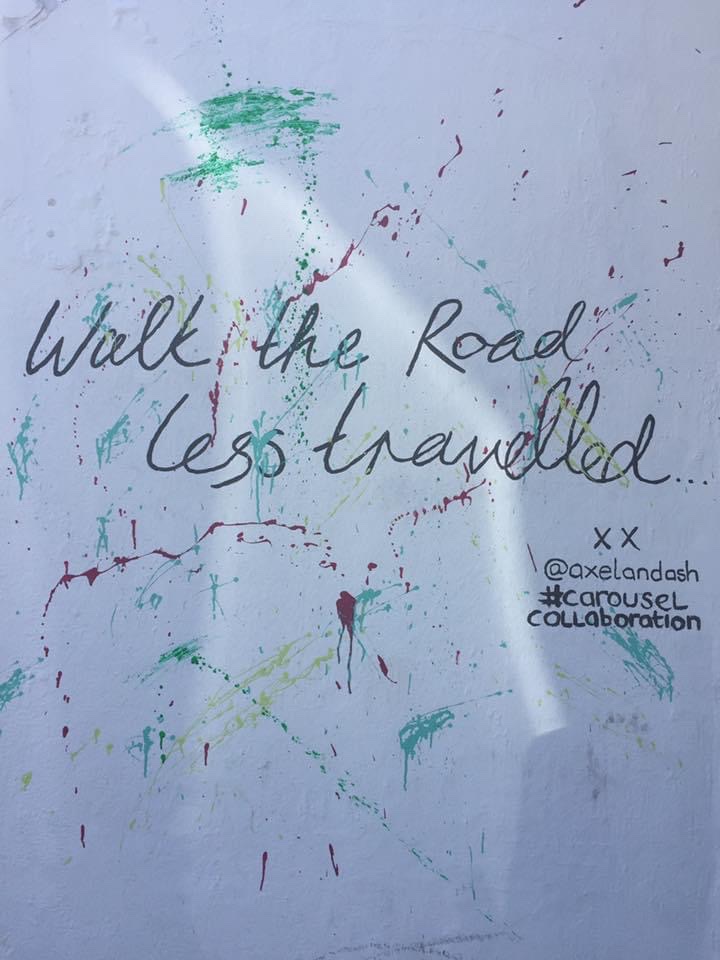 Walk the Road
less travelled...
X X
@axelandash
#carousel
collaboration